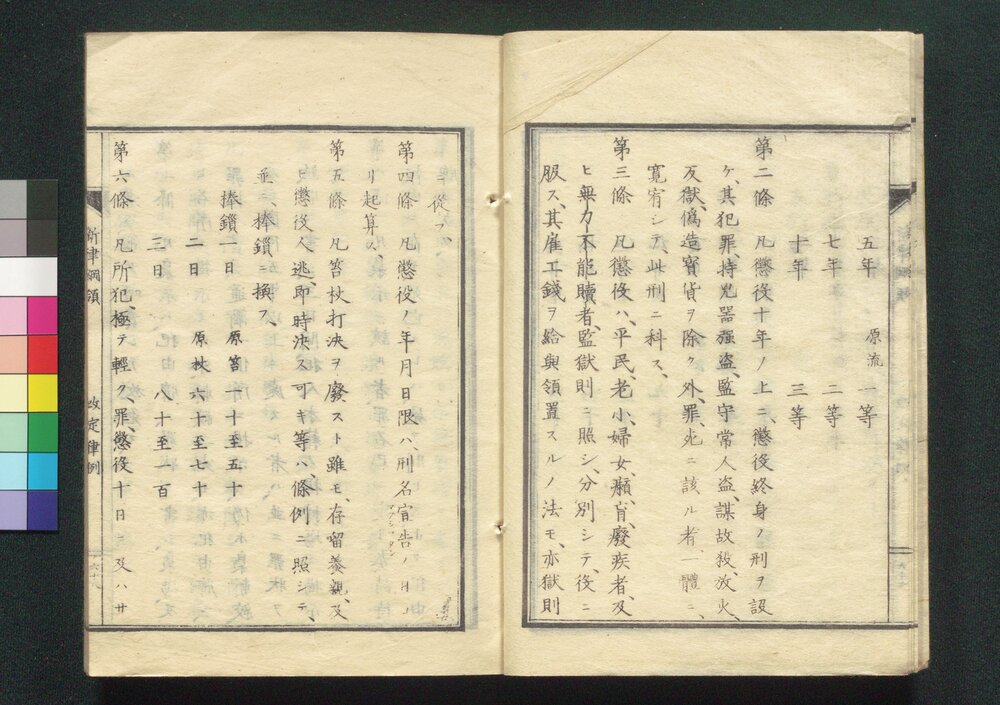 五年　原流　一等
七年　　　二等
十年　　　三等
第二條　凡懲役十年ノ上ニ、懲役終身ノ刑ヲ設
ケ、其犯罪、持兇器强盗、監守常人盗、謀故殺、放火、
反獄、僞造寶貨ヲ除ク外、罪死ニ該ル者、一體ニ、
寛宥シテ、此刑ニ科ス、
第三條　凡懲役ハ、平民、老小、婦女、癲、盲、廢疾者、及
ヒ無力不能贖者、監獄則ニ照シ、分別シテ、役ニ
服ス、其雇工錢ヲ給與領置スルノ法モ、亦獄則
ニ從フ、
第四條　凡懲役ノ年月日限ハ、刑名宣告ノ日ヨ
リ起算ス、
第五條　凡笞杖打決ヲ廢スト雖モ、存留養親、及
ヒ懲役人逃、即時決ス可キ等ハ、條例ニ照シテ、
並ニ、棒鎖ニ換フ、
棒鎖一日　原笞　一十至五十
二日　原杖　六十至七十
三日　八十至一百
第六條　凡所犯、極テ輕ク、罪懲役十日ニ及ハサ
新律綱領
改定律例